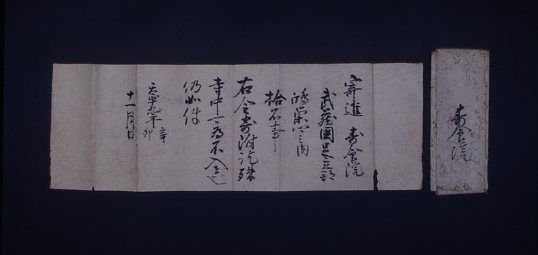 寄進 寿命院
武蔵国足立郡
鴻巣之内
拾石事
右令寄附訖殊
寺中可為不入者也
仍如件
天正十九年辛卯
十一月日
寿命院